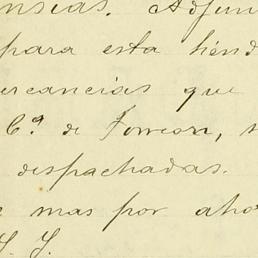 nsias. Adjun
para esta tiend
ercancias que
Cª de Torreon, s
despachadas.
mas por aho
S. S.